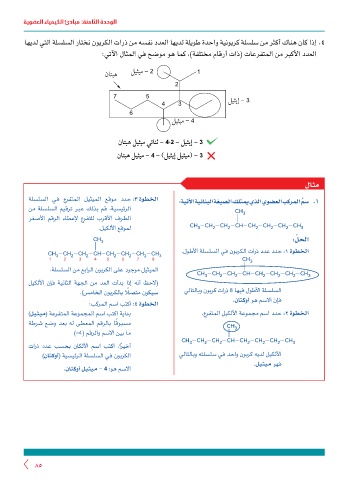 الوحدة الثامنة: مبادئ الكيمياء العضوية
٤. إذا كان هناك أكثر من سلسلة كربونية واحدة طويلة لديها العدد نفسه من ذرات الكربون نختار السلسلة التي لديها
العدد الأكبر من التفرعات (ذات أرقام مختلفة)، كما هو موضح في المثال الآتي:
هبتان
2 – ميثيل
1
2
7
5
4
3
6
3 – إيثيل
4 – ميثيل
3 – إيثيل – 2،4 – ثنائي ميثيل هبتان
3 – (ميثيل إيثيل) – 4 – ميثيل هبتان
مثال
٦- سمِّ المركب العضوي الذي يمتلك الصيغة البنائية الآتية:
CH3
CH3–CH2–CH2–CH–CH2–CH2–CH2–CH3
الحلّ:
الخطوة ١: حدد عدد ذرات الكربون في السلسلة الأطول.
CH3
CH3–CH2–CH2–CH–CH2–CH2–CH2–CH3
السلسلة الأطول فيها 8 ذرات كربون وبالتالي
فإن الاسم هو أوكتان.
الخطوة ٢: حدد اسم مجموعة الألكيل المتفرعة.
CH3
CH3–CH2–CH2–CH–CH2–CH2–CH2–CH3
الألكيل لديه كربون واحد في سلسلته وبالتالي
فهو ميثيل.
الخطوة ٣: حدد موقع الميثيل المتفرع في السلسلة
الرئيسية. ثم بذلك عبر ترقيم السلسلة من
الطرف الأقرب للتفرع لإعطاء الرقم الأصغر
لموقع الألكيل.
CH3
CH3–CH2–CH2–CH–CH2–CH2–CH2–CH3
1 2 3 4 5 6 7 8
الميثيل موجود على الكربون الرابع من السلسلة.
(لاحظ أنه إذا بدأت العد من الجهة الثانية فإن الألكيل
سيكون متصلًا بالكربون الخامس).
الخطوة ٤: اكتب اسم المركب:
بداية اكتب اسم المجموعة المتفرعة (ميثيل)
مسبوقًا بالرقم المعطى له بعد وضع شرطة
ما بين الاسم والرقم (4-)
أخيرًا، اكتب اسم الألكان بحسب عدد ذرات
الكربون في السلسلة الرئيسية (أوكتان)
الاسم هو: 4 – ميثيل أوكتان.
٨٥